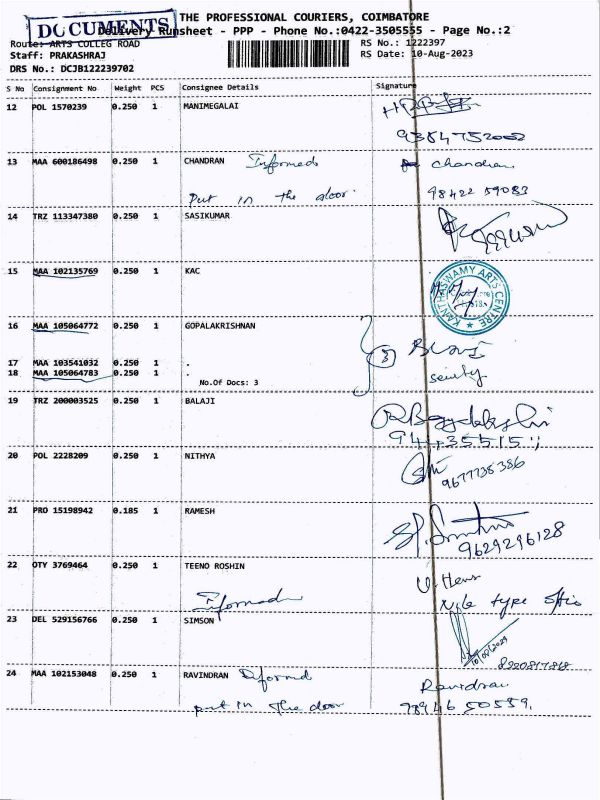 THE PROFESSIONAL COURIERS, COIMBATORE
DOCUMENTS
Delivery Runsheet - PPP - Phone No.:0422-3505555 - Page No.:2
Route: ARTS COLLEG ROAD RS No.: 1222397
Staff: PRAKASHRAJ RS Date: 10-Aug-2023
DRS No.: DCJB122239702
S No Consignment No Weight PCS Consignee Details Signature
12 POL 1570239 0.250 1 MANIMEGALAI
9384752002
13 MAA 600186498 0.250 1 CHANDRAN Informed chandran
Put in the door. 98422 59083
14 TRZ 113347380 0.250 1 SASIKUMAR
15 MAA 102135769 0.250 1 KAC
KANTHASWAMY ARTS CENTRE
16 MAA 105064772 0.250 1 GOPALAKRISHNAN
17 MAA 103541032 0.250 1 . 3
18 MAA 105064783 0.250 1 .
No.Of Docs: 3
19 TRZ 200003525 0.250 1 BALAJI
20 POL 2228209 0.250 1 NITHYA
9677735386
21 PRO 15198942 0.185 1 RAMESH
9629296128
22 OTY 3769464 0.250 1 TEENO ROSHIN
Informed type
23 DEL 529156766 0.250 1 SIMSON
10/08/2023
24 MAA 102153048 0.250 1 RAVINDRAN Informed Ravidran
put in the door 98946 50559.